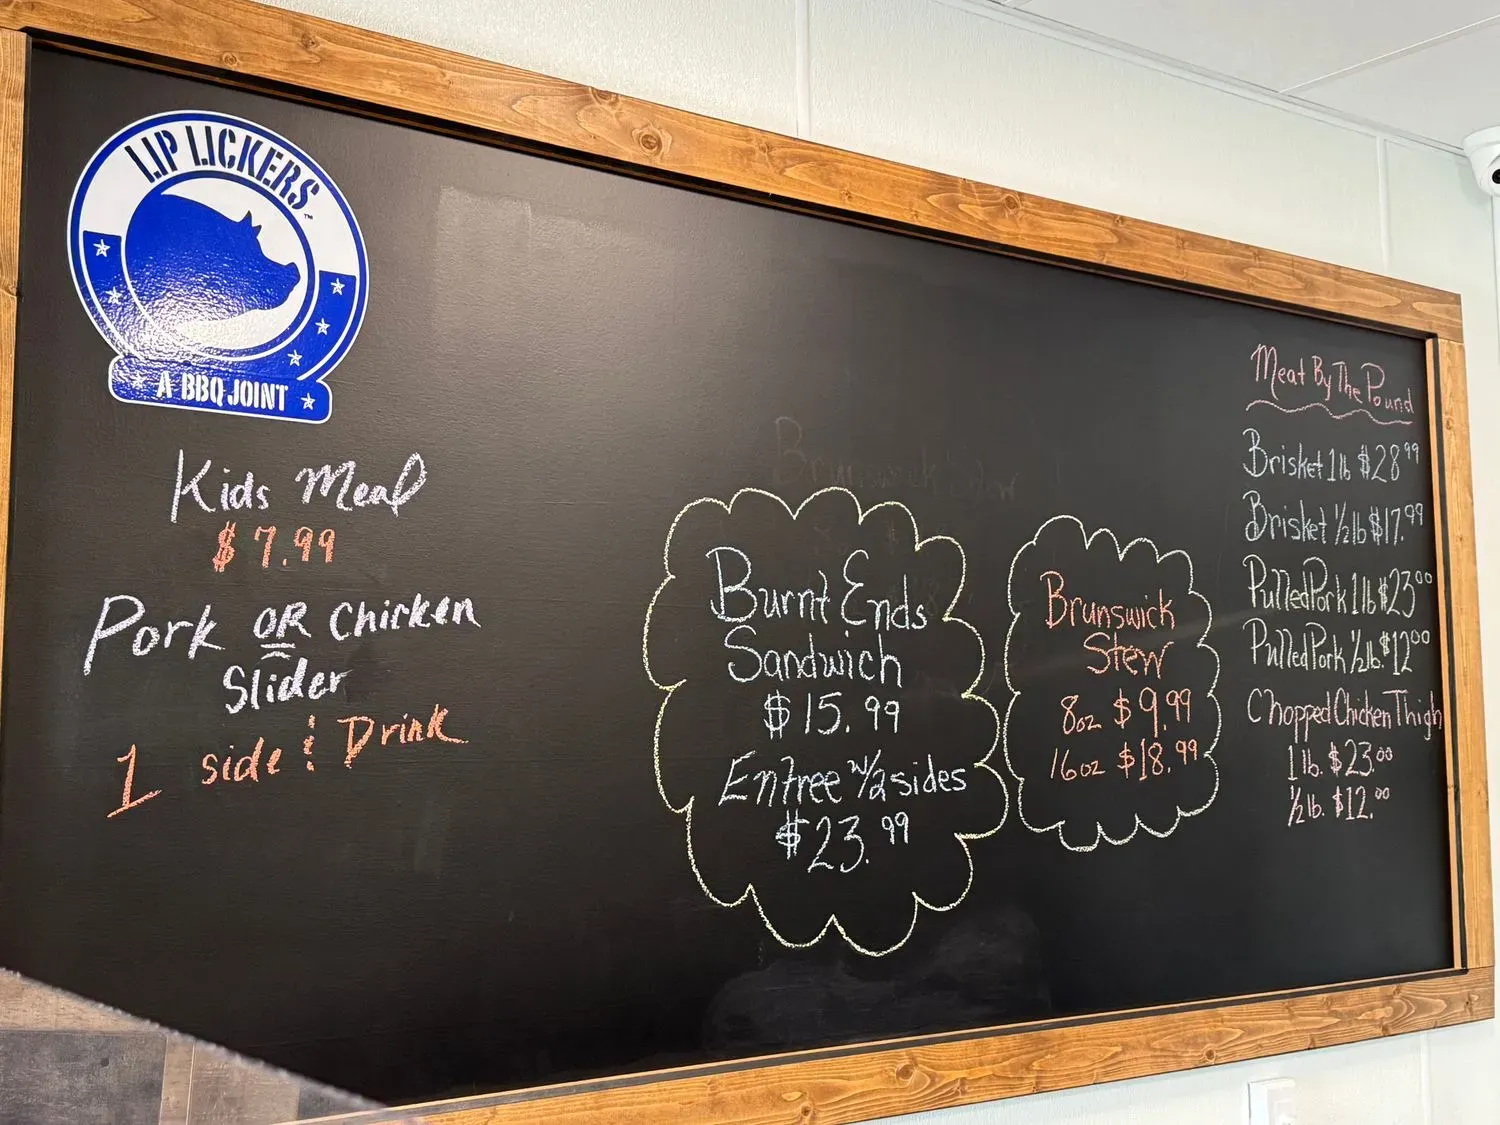 LIP LICKERS™
A BBQ JOINT
Kids Meal
$7.99
Pork OR Chicken
Slider
1 side & Drink
Brunswick Stew
Burnt Ends
Sandwich
$15.99
Entree w/2 sides
$23.99
Brunswick
Stew
8oz $9.99
16oz $18.99
Meat By The Pound
Brisket 1lb $28.99
Brisket 1/2lb $17.99
Pulled Pork 1lb $23.00
Pulled Pork 1/2lb. $12.00
Chopped Chicken Thigh
1lb. $23.00
1/2lb. $12.00